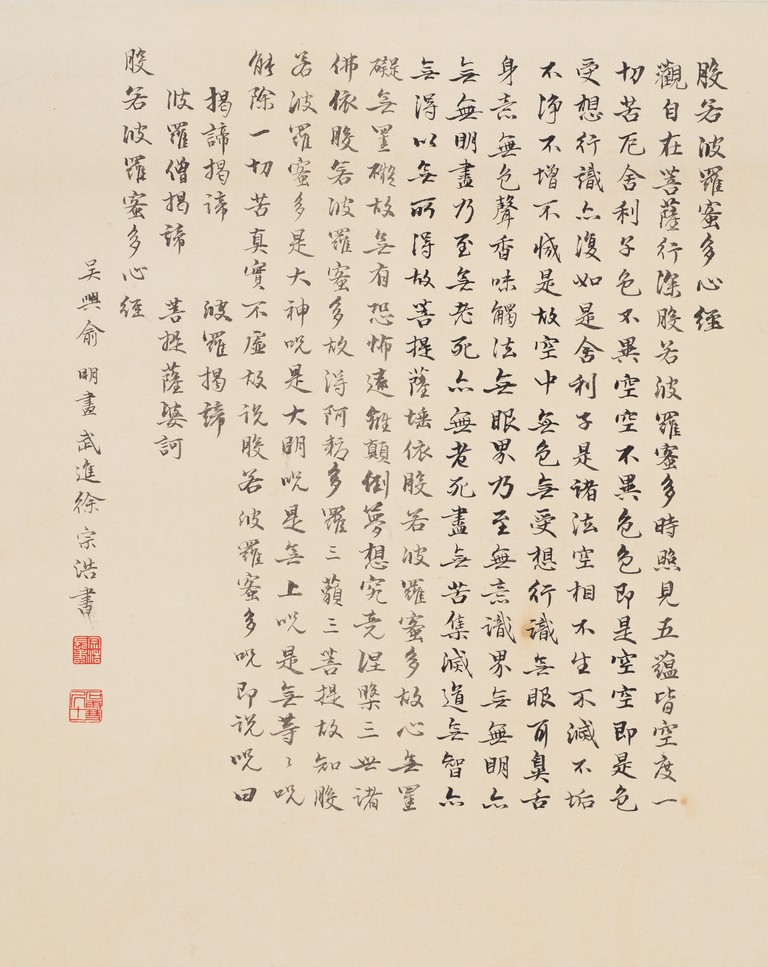 般若波羅蜜多心經
觀自在菩薩行深般若波羅蜜多時照見五蘊皆空度一
切苦厄舍利子色不異空空不異色色即是空空即是色
受想行識亦復如是舍利子是諸法空相不生不滅不垢
不淨不增不減是故空中無色無受想行識無眼耳鼻舌
身意無色聲香味觸法無眼界乃至無意識界無無明亦
無無明盡乃至無老死亦無老死盡無苦集滅道無智亦
無得以無所得故菩提薩埵依般若波羅蜜多故心無罣
礙無罣礙故無有恐怖遠離顛倒夢想究竟涅槃三世諸
佛依般若波羅蜜多故得阿耨多羅三藐三菩提故知般
若波羅蜜多是大神咒是大明咒是無上咒是無等々咒
能除一切苦真實不虛故說般若波羅蜜多咒即說咒曰
揭諦揭諦 波羅揭諦
波羅僧揭諦 菩提薩婆訶
般若波羅蜜多心經
吳興俞明畫武進徐宗浩書